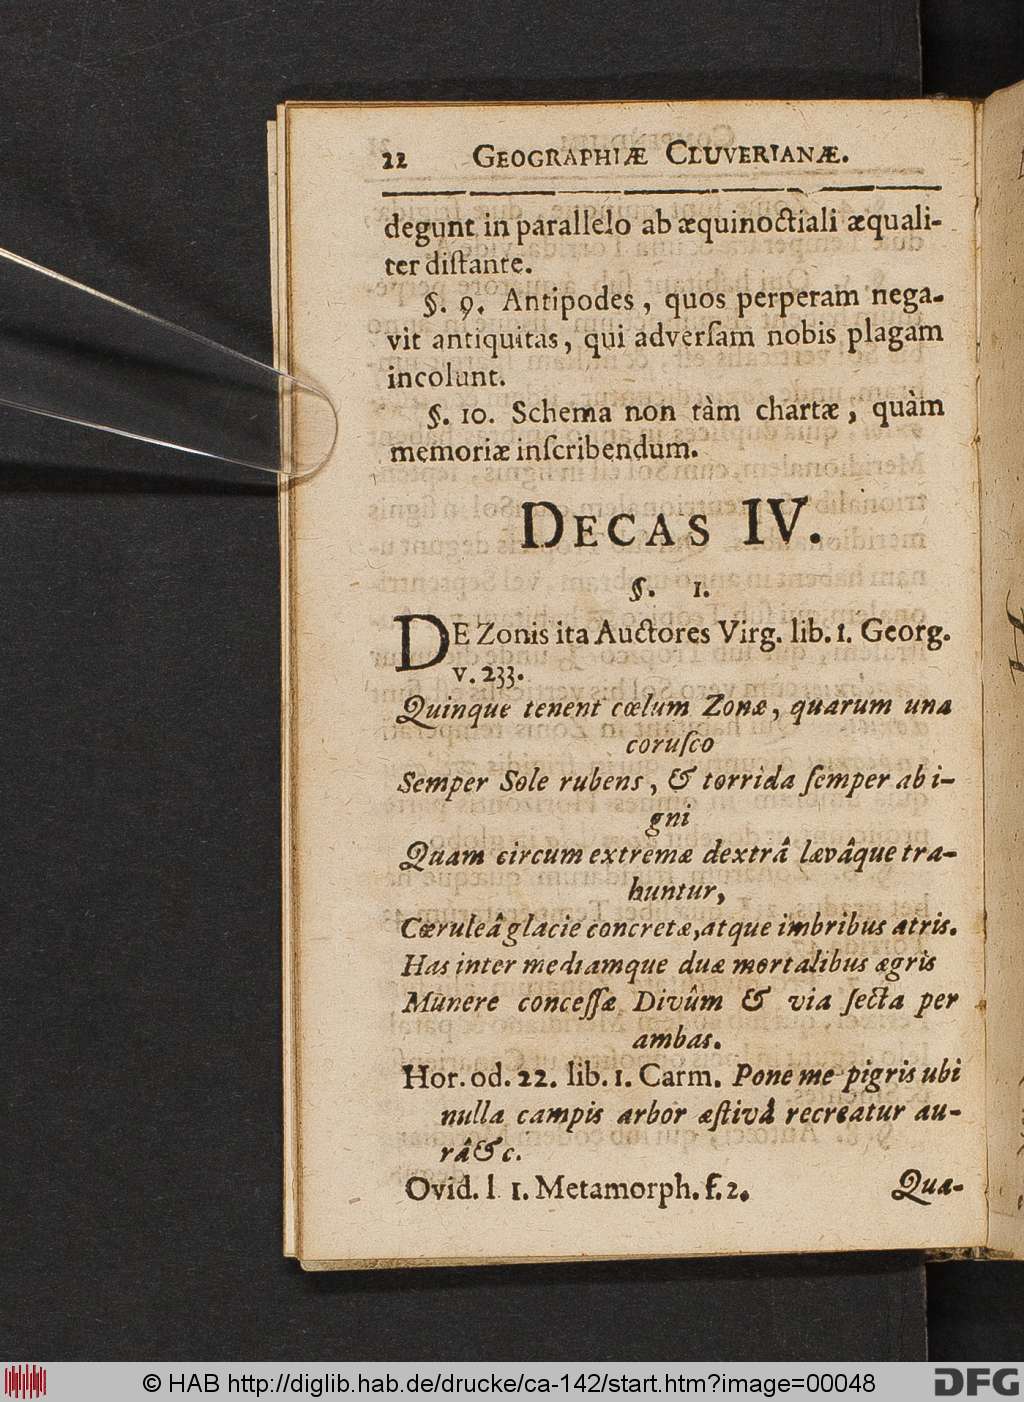 22 GEOGRAPHIÆ CLUVERIANÆ.
degunt in parallelo ab æquinoctiali æquali-
ter diſtante.
§. 9. Antipodes, quos perperam nega-
vit antiquitas, qui adverſam nobis plagam
incolunt.
§. 10. Schema non tàm chartæ, quàm
memoriæ inſcribendum.
DECAS IV.
§. 1.
DE Zonis ita Auctores Virg. lib. 1. Georg.
v. 233.
Quinque tenent cœlum Zonæ, quarum una
coruſco
Semper Sole rubens, & torrida ſemper ab i-
gni
Quam circum extremæ dextrâ lævâque tra-
huntur,
Cœruleâ glacie concretæ, atque imbribus atris.
Has inter mediamque duæ mortalibus ægris
Munere conceſſæ Divûm & via ſecta per
ambas.
Hor. od. 22. lib. 1. Carm. Pone me pigris ubi
nulla campis arbor æſtivâ recreatur au-
râ &c.
Ovid. l 1. Metamorph. f. 2. Qua-
© HAB http://diglib.hab.de/drucke/ca-142/start.htm?image=00048
DFG